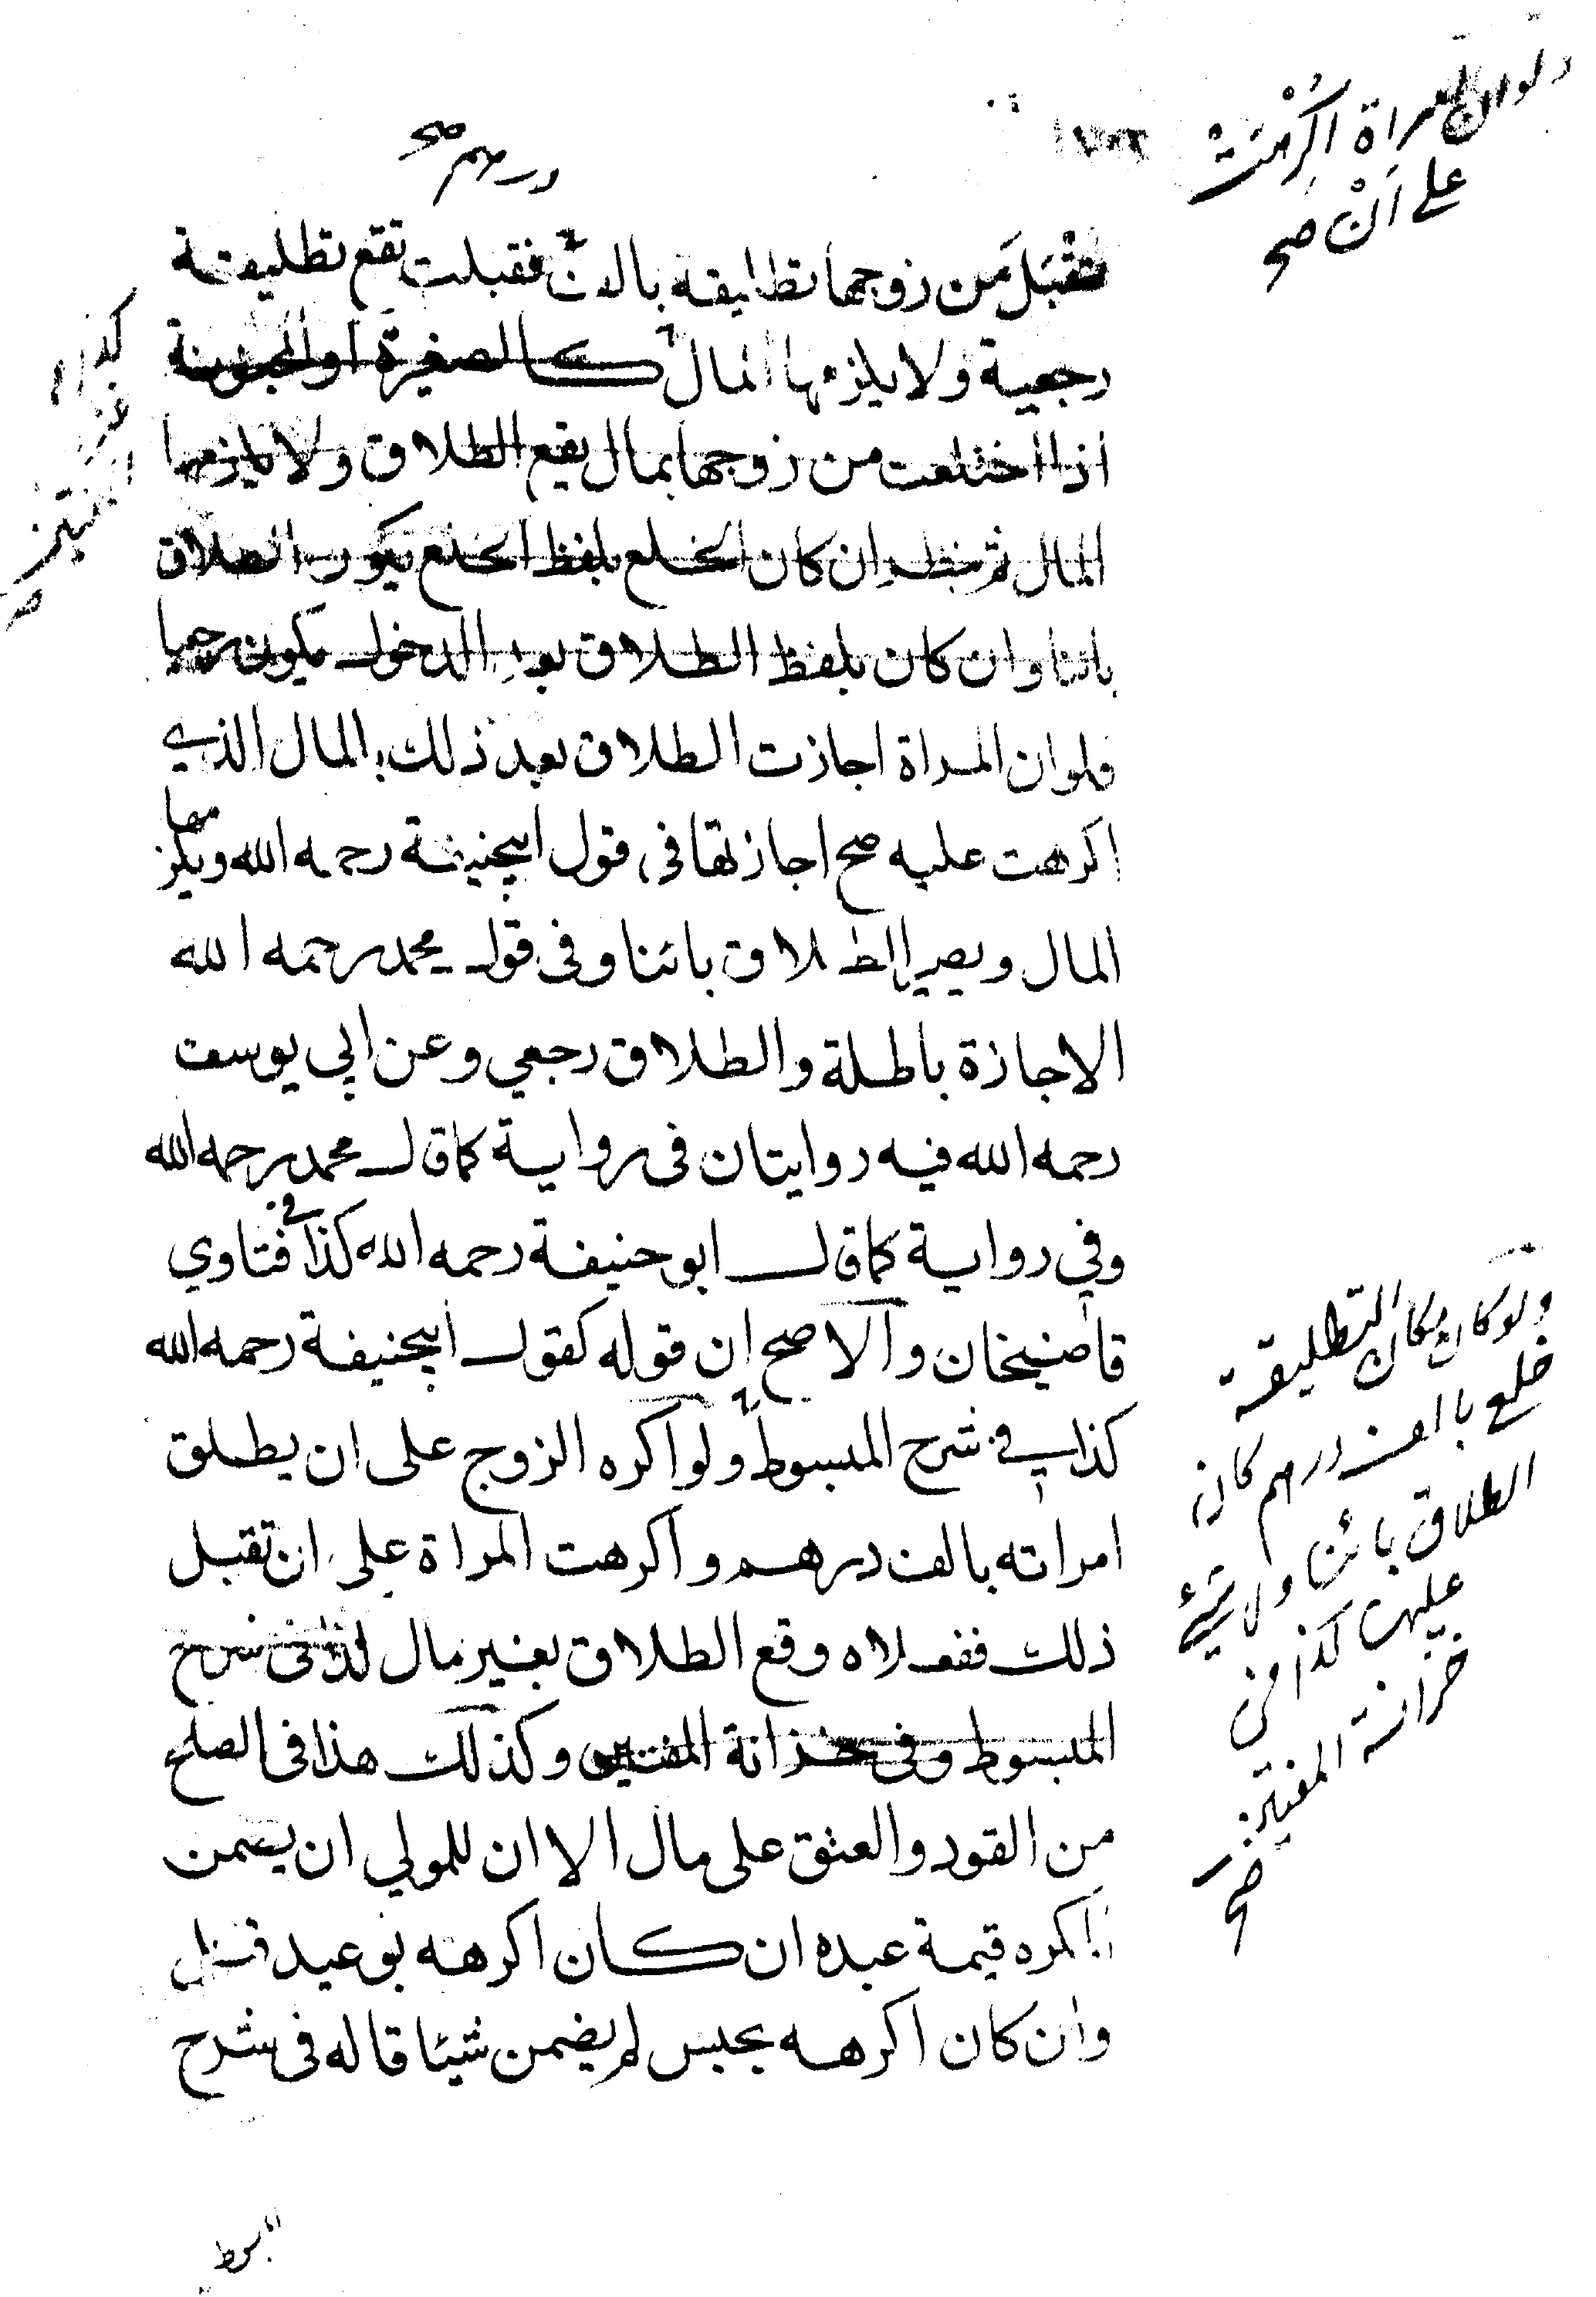 ولو ان المراة اكرهت
على ان صح
درهم صح
تقبل من زوجها تطليقة بالف فقبلت تقع تطليقة
رجعية ولا يلزمها المال كالصغيرة او المجنونة
اذا اختلعت من زوجها بمال يقع الطلاق ولا يلزمها
المال ثم ينظر ان كان الخلع بلفظ الخلع يكون الطلاق
بائنا وان كان بلفظ الطلاق بعد الدخول يكون رجعيا
ولو ان المراة اجازت الطلاق بعد ذلك بالمال الذي
اكرهت عليه صح اجازتها في قول ابيحنيفة رحمه الله ويلزمها
المال ويصير الطلاق بائنا وفي قول محمد رحمه الله
الاجازة باطلة والطلاق رجعي وعن ابي يوسف
رحمه الله فيه روايتان في رواية كما قال محمد رحمه الله
وفي رواية كما قال ابو حنيفة رحمه الله كذا في فتاوي
قاضيخان والاصح ان قوله كقول ابيحنيفة رحمه الله
كذا في شرح المبسوط ولو اكره الزوج على ان يطلق
امراته بالف درهم واكرهت المراة على ان تقبل
ذلك ففعلاه وقع الطلاق بغير مال كذا في شرح
المبسوط وفي خزانة المفتيين وكذلك هذا في الصلح
من القود والعتق على مال الا ان للمولي ان يضمن
المكره قيمة عبده ان كان اكرهه بوعيد قتل
وان كان اكرهه بحبس لم يضمن شيئا قاله في شرح
كذا في
المفتيين
صح
ولو كان مكان التطليقة
خلع بالف درهم كان
الطلاق بائنا ولا شيء
عليها كذا في
خزانة المفتيين
صح
المبسوط